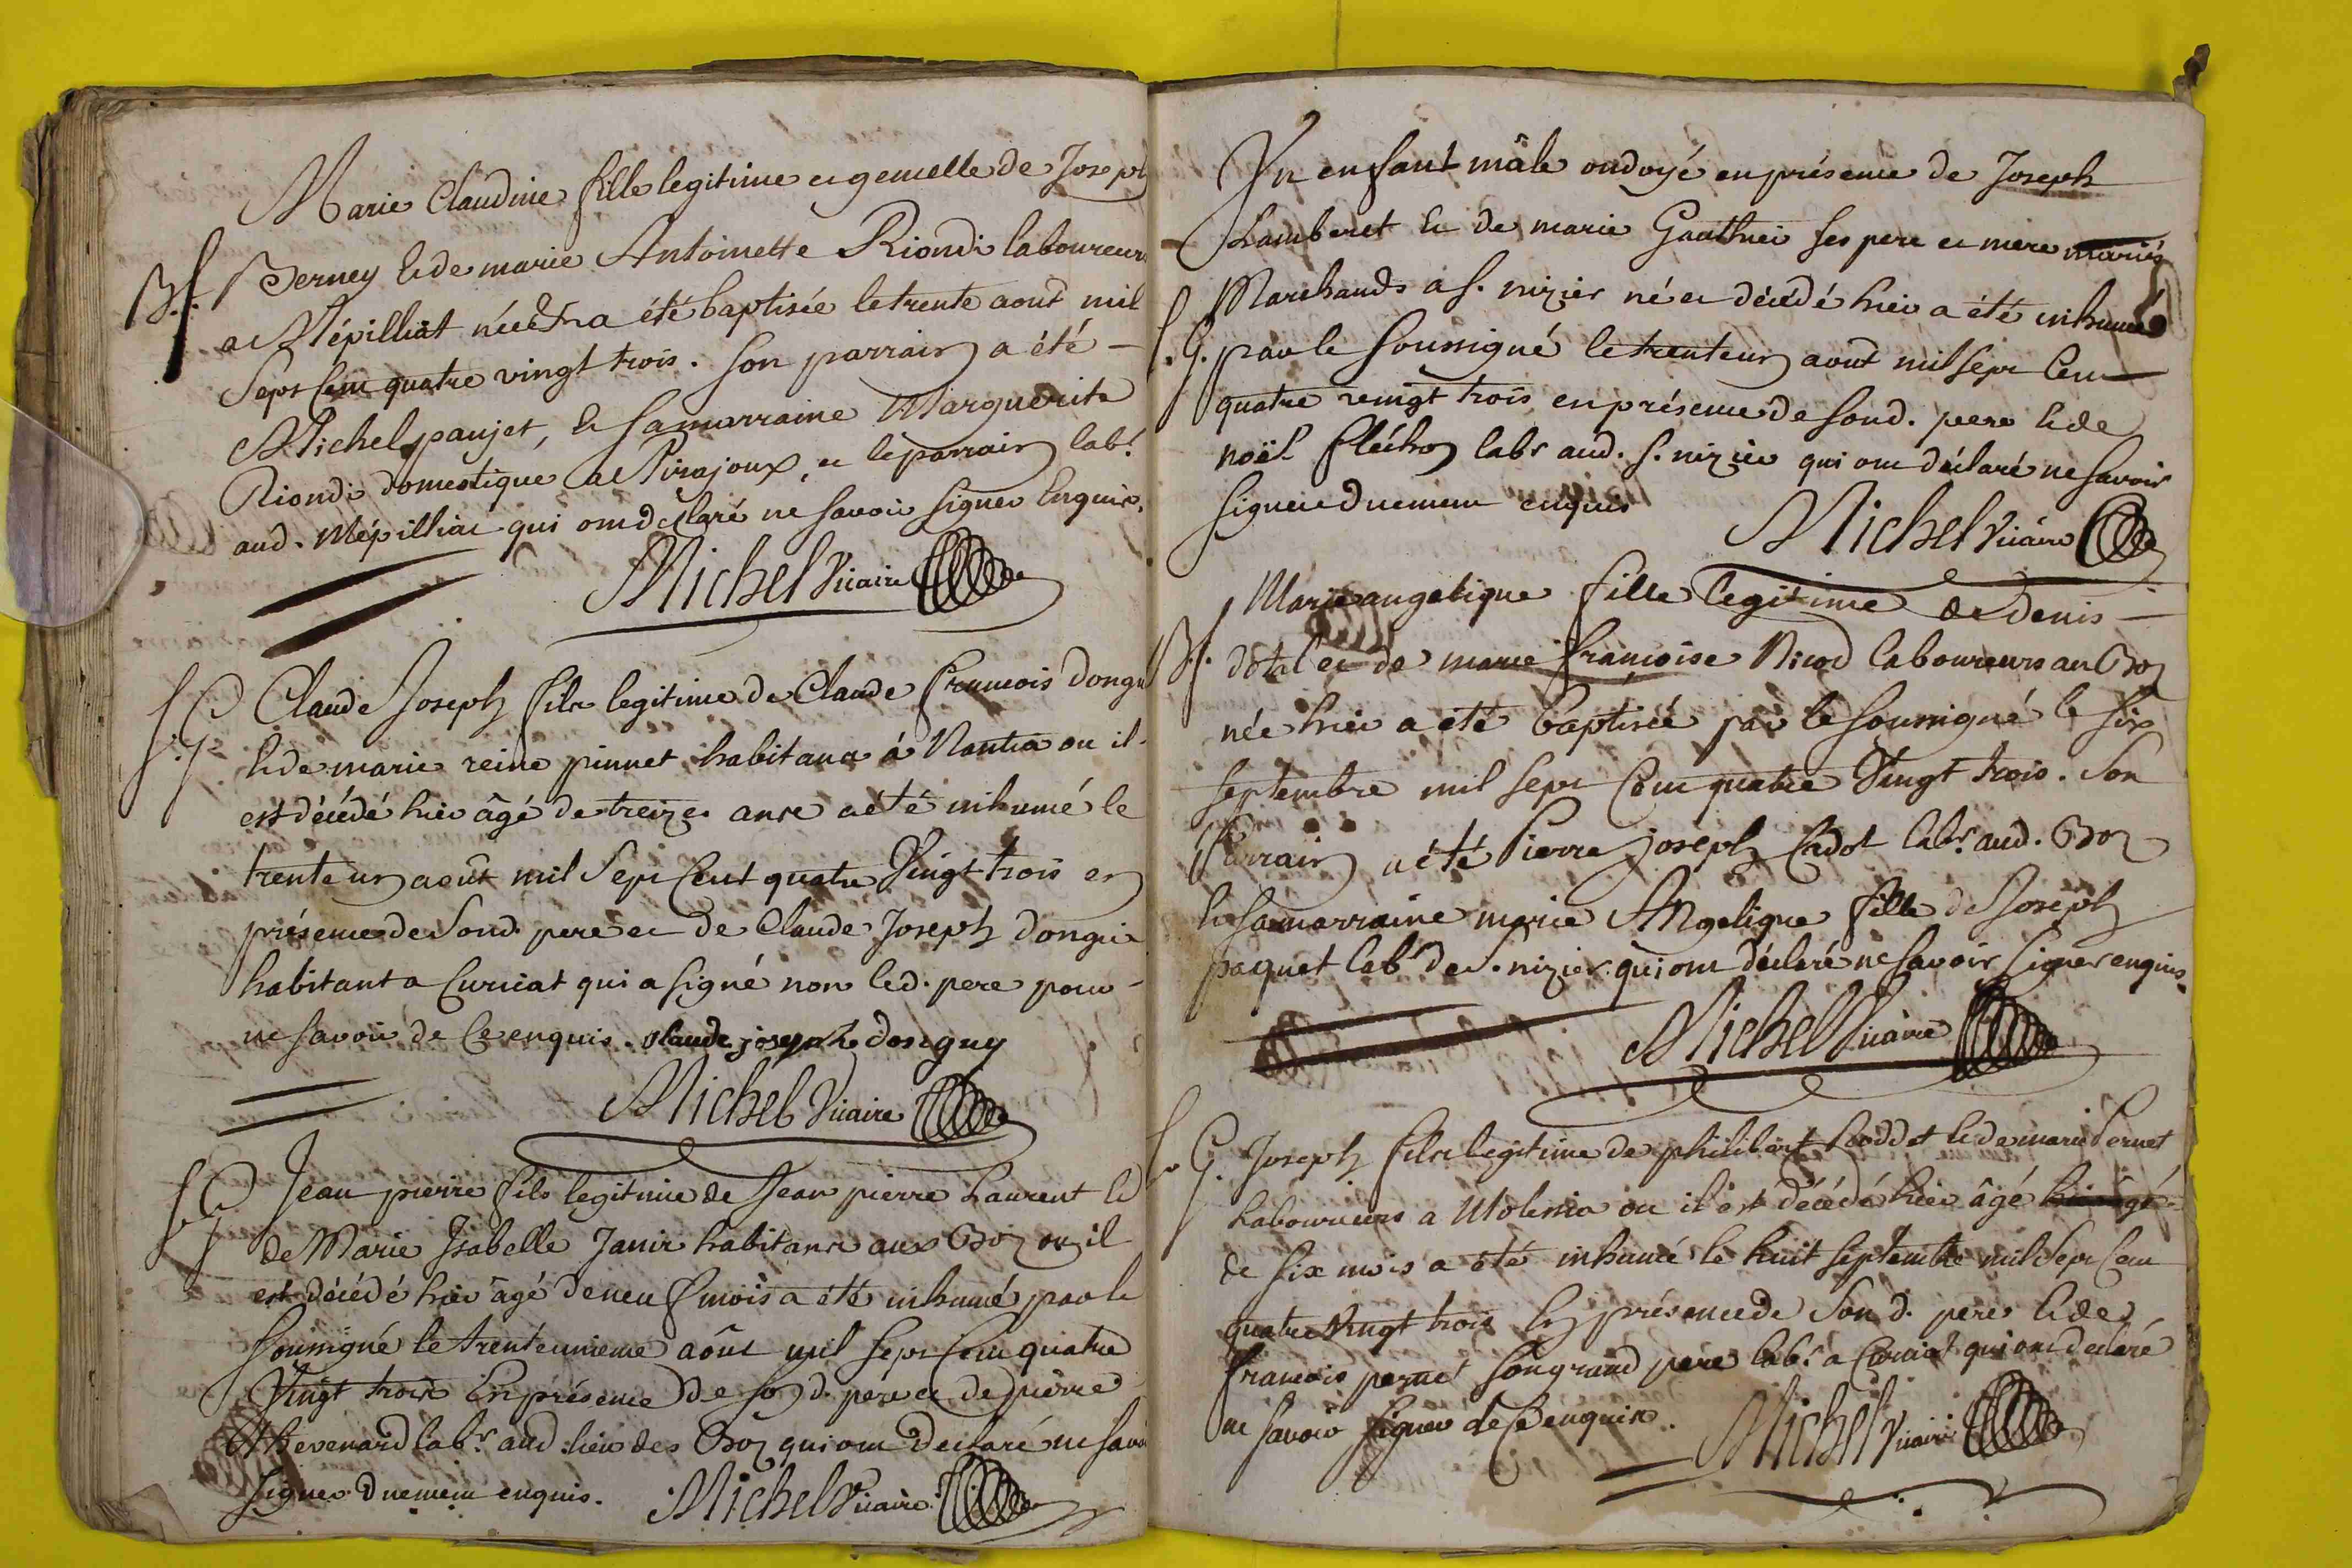 Marie Claudine fille legitime et gemelle de Joseph
B.f. Berney et de marie Antoinette Riondi laboureurs
a Mépilliat née a été baptisée le trente aout mil
Sept Cent quatre vingt trois. Son parrain a été
Michel paujet, et sa marraine Marguerite
Riondi domestique a Pirajoux, et le parrain labr.
aud. Mépilliat qui ont déclaré ne savoir signer Enquis.
Michel Vicaire
S.G. Claude Joseph fils legitime de Claude francois Dongu
et de marie reine pinnet habitans á Nantua ou il
est décédé hier âgé de treize ans a été inhumé le
trente un août mil Sept Cent quatre Vingt trois en
présence de Sond. pere et de Claude Joseph Donguy
habitant a Curciat qui a signé non led. pere pour
ne savoir de Ce enquis. claude josephe donguy
Michel Vicaire
S.G. Jean pierre fils legitime de Jean pierre Laurent et
de Marie Isabelle Janin habitans aux Boz ou il
est décédé hier âgé de neuf mois a été inhumé par le
Soussigné le trente unieme aôut mil Sept Cent quatre
Vingt trois En présence de sond. pére et de pierre
Thevenard labr. aud. lieu des Boz qui ont Declaré ne savoir
Signer Duement enquis. Michel Vicaire
Un enfant mâle ondoyé en présence de Joseph
Lamberet et de marie Gauthier ses pere et mere mariés
Marchands a S. nizier né et décédé hier a été inhumé
S.G. par le Soussigné le trente un aout mil Sept Cent
quatre vingt trois en présence de sond. pere et de
noël fléchon labr aud. S. nizier qui ont déclaré ne savoir
signer duement enquis
Michel Vicaire
Marie angelique fille legitime de denis
B.f. dotal et de marie françoise Nicod laboureurs au Boz
née hier a été baptisée par le soussigné le six
septembre mil sept Cent quatre Vingt trois. Son
Parrain a été Pierre joseph Cadot labr. aud. Boz
et sa marraine marie Angelique fille de Joseph
paquet labr de S. nizier qui ont déclaré ne savoir signer enquis.
Michel Vicaire
S.G. Joseph fils legitime de philibert et de marie Pernet
Laboureurs a Molenia ou il est décédé hier âgé hier âgé
de six mois a été inhumé le huit septembre mil Sept Cent
quatre Vingt trois En présence de Son d. pere et de
francois pernet Son grand pere labr. a Curciat qui ont declaré
ne savoir Signer de Ce enquis. Michel Vicaire